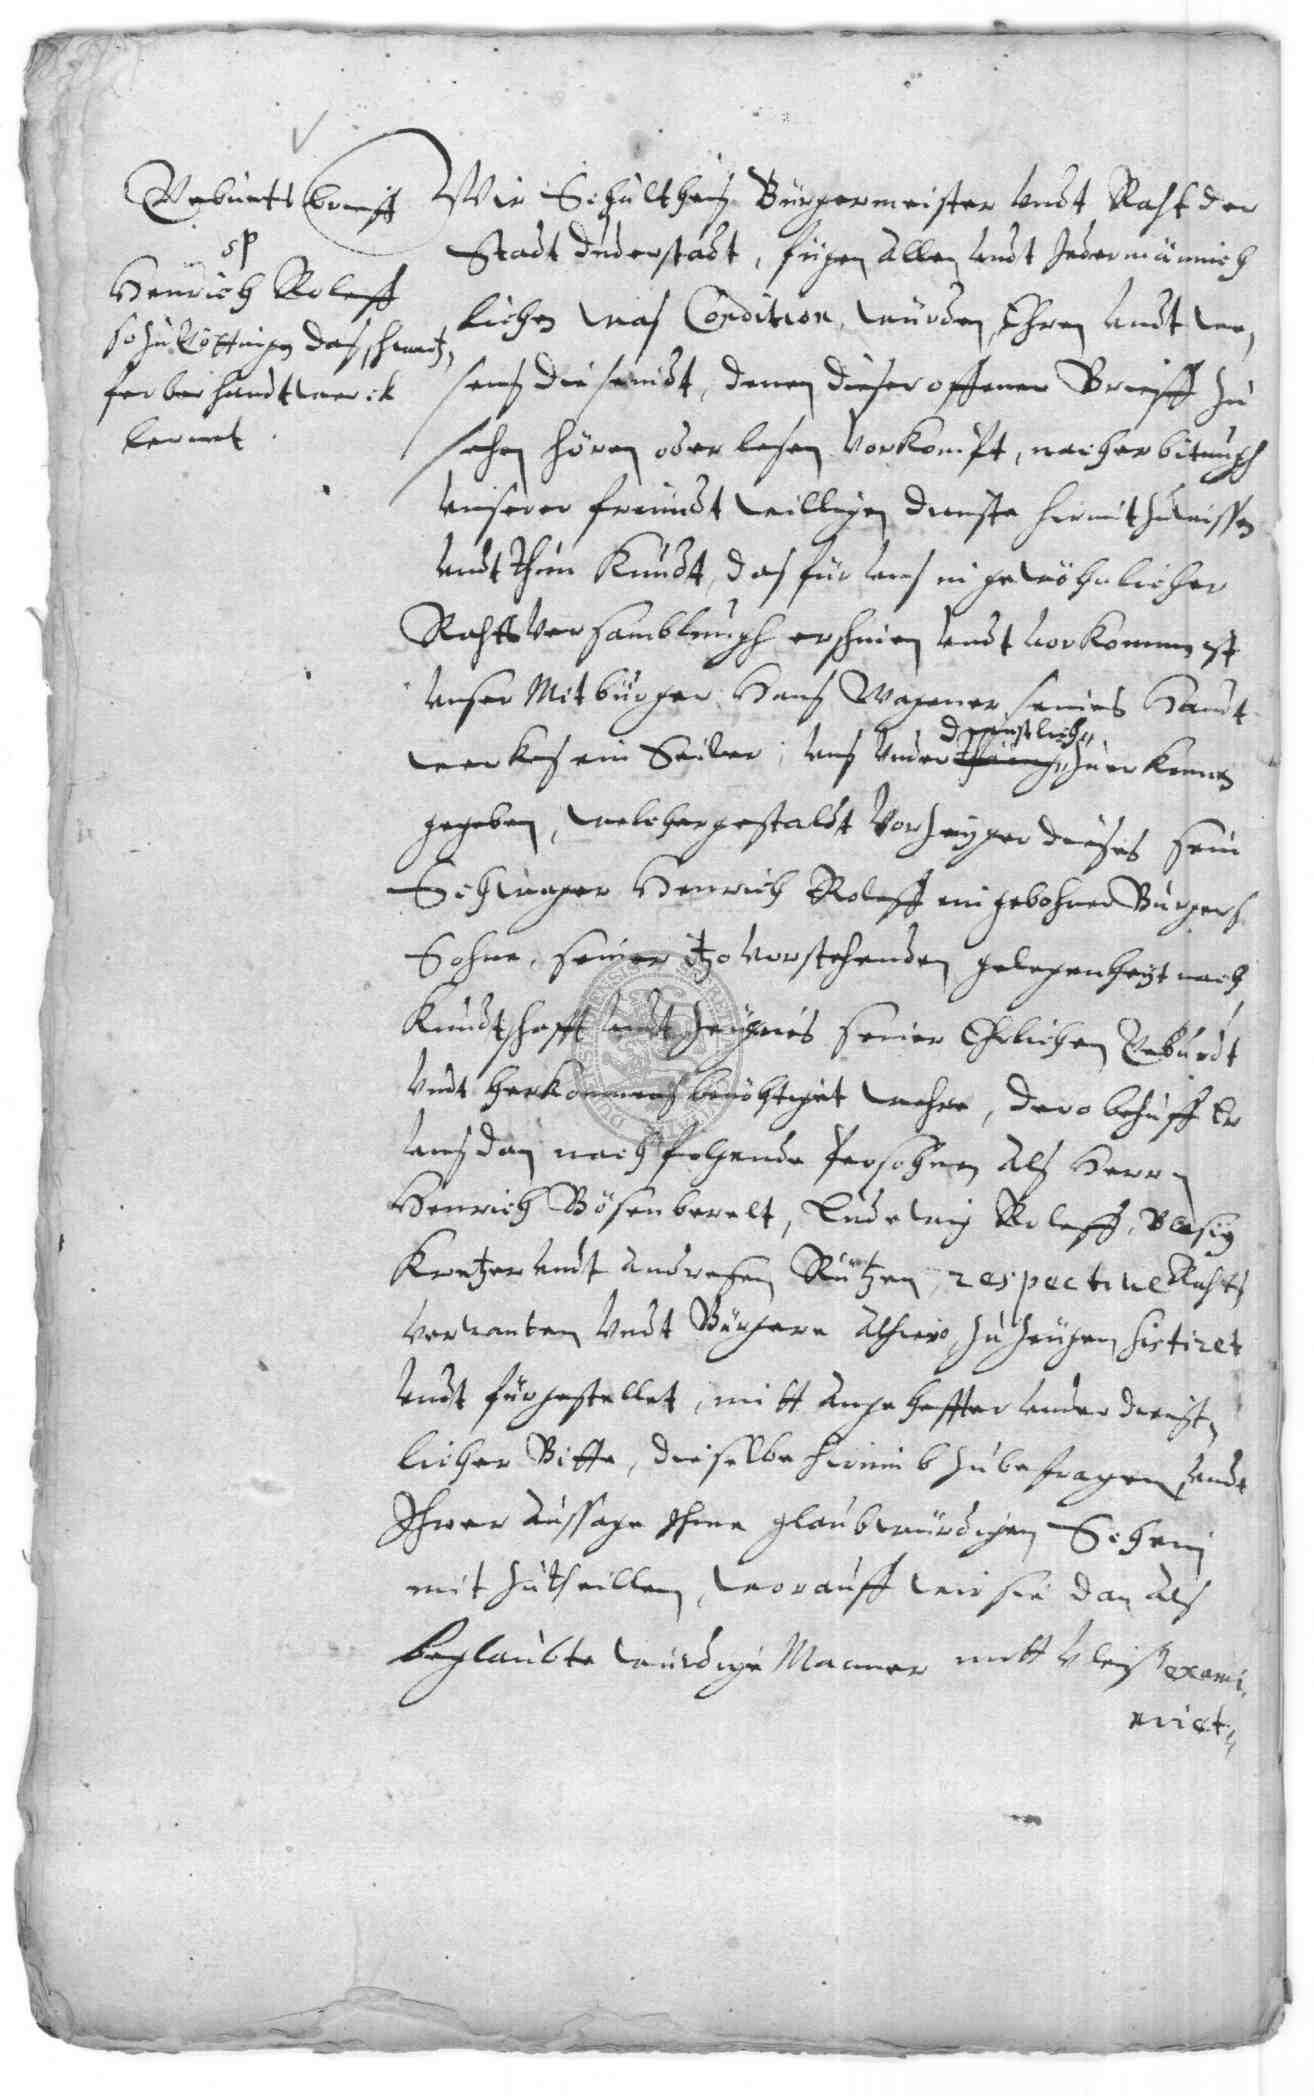 Geburts brieff
sp
Henrich Roleff
so zu Göttingen das schwartz
ferber handtwerck
lernet.
Wir Schultheis Bürgermeister undt Raht der
Stadt Duderstadt, fügen allen undt Jedermännich
lichen was Condition, würden, Ehren undt we„
sens die seindt, denen dieser offener Brieff zu
sehen hören oder lesen vorkompt, nacher bitungh
unserer freundt willigen dienste hiermit zu wissen
undt thun kundt, das für uns in gewöhnlicher
Rahtts versamblungh erschienen undt vorkommen ist
unser Mitbürger Hans Wagener seines Handt
werckes ein Seiler, uns under dienstlich zu erkennen
gegeben, welchergestaldt Vorzeiger dieses sein
Schwager Henrich Roleff ein gebohrner Bürgers
Sohne, seiner itzo vorstehenden gelegenheyt nach
Kundtschafft undt zeugnis seiner Ehrlichen Geburdt
undt herkommens benöhtiget wehre, dero behuff Er
uns dan nachfolgende Persohnen als Herrn
Henrich Bösenberelt, Ludewig Roleff, Blasig
Kretzer undt Andresen Rützen, respective Rahts
verwanten undt Bürgere alhiero, zu zeugen sistiret
undt fürgestellet, mitt angeheffter underdienst„
licher Bitte, dieselbe hierumb zu befragen, undt
Ihrer Aussage Ihme glaubwürdigen Schein
mit zutheillen, worauff wir sie dan als
beglaubte würdige Manner mitt vleiß exami„
niret„